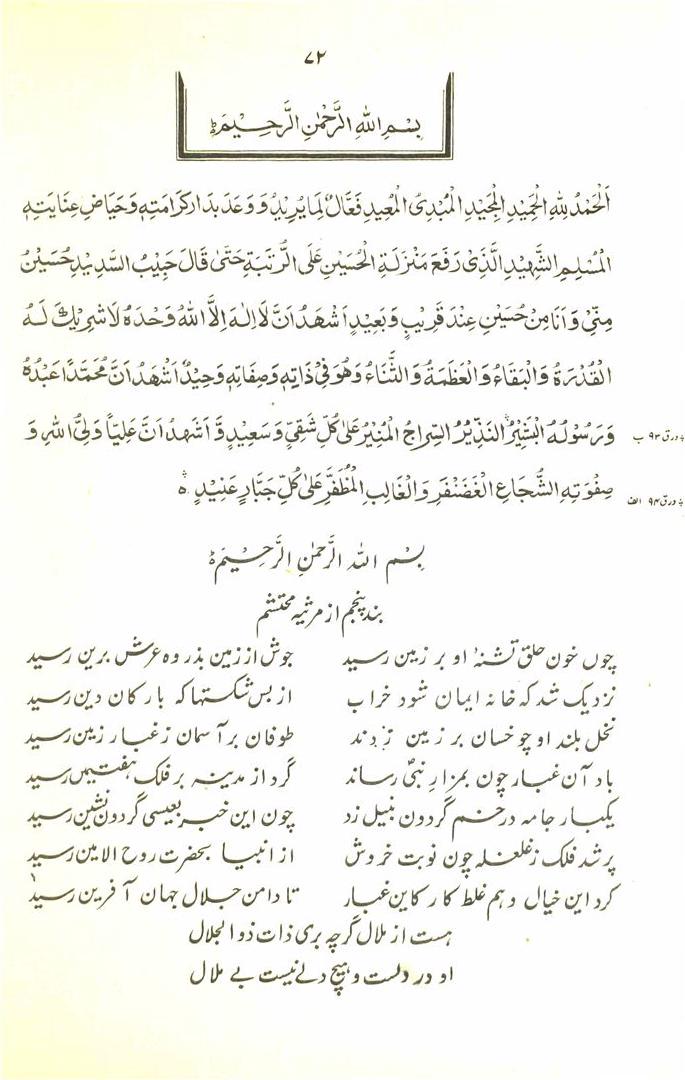 ۷۲
بِسْمِ اللهِ الرَّحْمٰنِ الرَّحِيْمَ ؕ
اَلْحَمْدُ لِلّٰهِ الْحَمِيْدِ الْمَجِيْدِ الْمُبْدِئُ الْمُعِيْدِ فَعَّالٌ لِمَا يُرِيْدُ وَ وَعَدَ بِدَارِ كَرَامَتِهٖ وَحَيَاضِ عِنَايَتِهٖ
الْمُسْلِمِ الشَّهِيْدِ الَّذِیْ رَفَعَ مَنْزِلَةِ الْحُسَيْنِ عَلَی الرُّتْبَةِ حَتّٰی قَالَ حَبِيْبُ السَّدِيْدِ حُسَيْنُ
مِنِّیْ وَ اَنَا مِنْ حُسَيْنِ عِنْدَ قَرِيْبٍ وَ بَعِيْدٍ اَشْهَدُ اَنْ لَا اِلٰهَ اِلَّا اللهُ وَحْدَهٗ لَا شَرِيْكَ لَهُ
الْقُدْرَةُ وَالْبَقَاءُ وَالْعَظَمَةُ وَالثَّنَاءُ وَهُوَ فِیْ ذَاتِهٖ وَصِفَاتِهٖ وَحِيْدٌ اَشْهَدُ اَنَّ مُحَمَّدًا عَبْدُهُ
وَرَسُوْلُهُ الْبَشِيْرُ النَّذِيْرُ السِّرَاجُ الْمُنِيْرُ عَلٰی كُلِّ شَقِیٍّ وَ سَعِيْدٍ وَّ اَشْهَدُ اَنَّ عَلِيًّا وَلِیُّ اللهِ وَ
ورق ۹۳ ب
صِفْوَتِهِ الشُّجَاعِ الْغَضَنْفَرِ وَالْغَالِبِ الْمُظَفَّرِ عَلٰی كُلِّ جَبَّارٍ عَنِيْدٍ ہ
ورق ۹۴ الف
بِسْمِ اللهِ الرَّحْمٰنِ الرَّحِيْمَ ؕ
بند پنجم از مرثیہ محتشم
چوں خون حلق تشنۂ او بر زمین رسید جوش از زمین بذروہ عرش برین رسید
نزدیک شد کہ خانہ ایمان شود خراب از بس شکستہا کہ بارکان دین رسید
نخل بلند او چو خسان بر زمین زدند طوفان بر آسمان ز غبار زمین رسید
باد آن غبار چون بمزار نبی رساند گرد از مدینہ بر فلک ہفتمیں رسید
یکبار جامہ در خم گردون بنیل زد چون این خبر بعیسی گردون نشین رسید
پر شد فلک ز غلغلہ چون نوبت خروش از انبیا بحضرت روح الامین رسید
کرد این خیال و ہم غلط کار کاین غبار تا دامن جلال جہان آفرین رسید
ہست از ملال گرچہ بری ذات ذوالجلال
او در دلست و ہیچ دلے نیست بے ملال